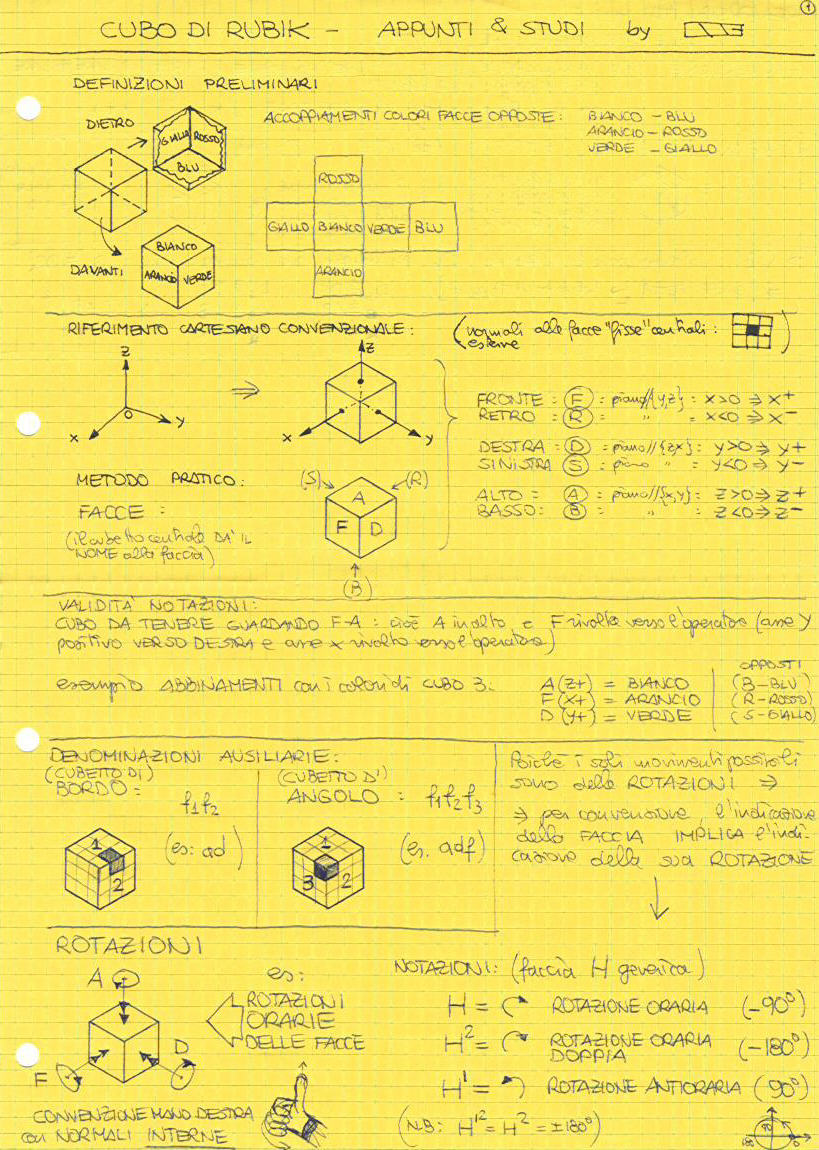 1
CUBO DI RUBIK - APPUNTI & STUDI by
DEFINIZIONI PRELIMINARI
DIETRO
GIALLO ROSSO
BLU
ACCOPPIAMENTI COLORI FACCE OPPOSTE: BIANCO - BLU
ARANCIO - ROSSO
VERDE - GIALLO
ROSSO
GIALLO BIANCO VERDE BLU
ARANCIO
DAVANTI
BIANCO
ARANCIO VERDE
RIFERIMENTO CARTESIANO CONVENZIONALE:
(normali alle facce "fisse" centrali:
esterne )
z
O
x y
⇒
z
x y
FRONTE: (F): piano//{y,z}: x>0 ⇒ x+
RETRO: (R): " " x<0 ⇒ x-
DESTRA: (D): piano//{zx}: y>0 ⇒ y+
SINISTRA (S): piano " y<0 ⇒ y-
ALTO: (A): piano//{x,y}: z>0 ⇒ z+
BASSO: (B): " " z<0 ⇒ z-
METODO PRATICO:
FACCE:
(il cubetto centrale DA' IL
NOME alla faccia)
(S) (R)
A
F D
(B)
VALIDITA' NOTAZIONI:
CUBO DA TENERE GUARDANDO F-A: cioè A in alto e F rivolta verso l'operatore (asse Y
positivo VERSO DESTRA e asse x rivolto verso l'operatore)
esempio ABBINAMENTI con i colori di CUBO 3:
OPPOSTI
A (z+) = BIANCO (B-BLU)
F (x+) = ARANCIO (R-ROSSO)
D (y+) = VERDE (S-GIALLO)
DENOMINAZIONI AUSILIARIE:
(CUBETTO DI)
BORDO: f1f2
(es: ad)
1
2
(CUBETTO D')
ANGOLO: f1f2f3
(es. adf)
1
3 2
Poichè i soli movimenti possibili
sono delle ROTAZIONI ⇒
⇒ per convenzione, l'indicazione
della FACCIA IMPLICA l'indi-
cazione della sua ROTAZIONE
ROTAZIONI
A
F D
es:
ROTAZIONI
ORARIE
DELLE FACCE
CONVENZIONE MANO DESTRA
con NORMALI INTERNE
NOTAZIONI: (faccia H generica)
H = ROTAZIONE ORARIA (-90°)
H² = ROTAZIONE ORARIA
DOPPIA (-180°)
H' = ROTAZIONE ANTIORARIA (90°)
(N.B: H'² = H² = ±180°)
180° 0°